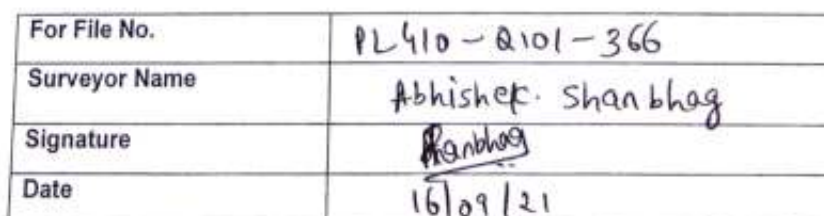 For File No. PL410-Q101-366
Surveyor Name Abhishek. Shanbhag
Signature Shanbhag
Date 16/09/21